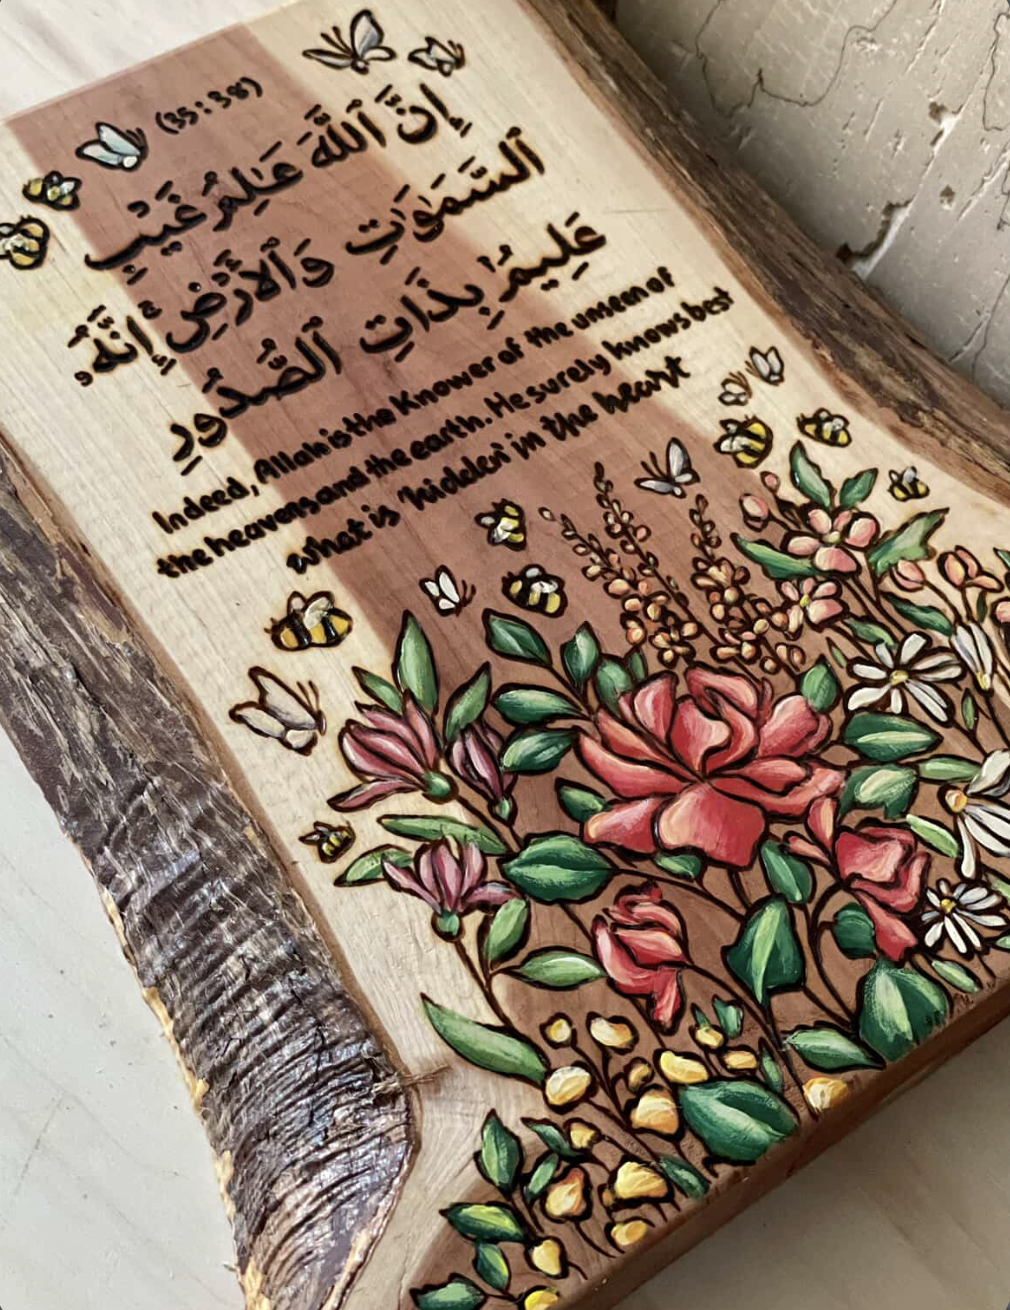 (35:38)
إِنَّ ٱللَّهَ عَـٰلِمُ غَيْبِ
ٱلسَّمَـٰوَٰتِ وَٱلْأَرْضِ ۚ إِنَّهُۥ
عَلِيمٌۢ بِذَاتِ ٱلصُّدُورِ
Indeed, Allah is the Knower of the unseen of
the heavens and the earth. He surely knows best
what is hidden in the heart